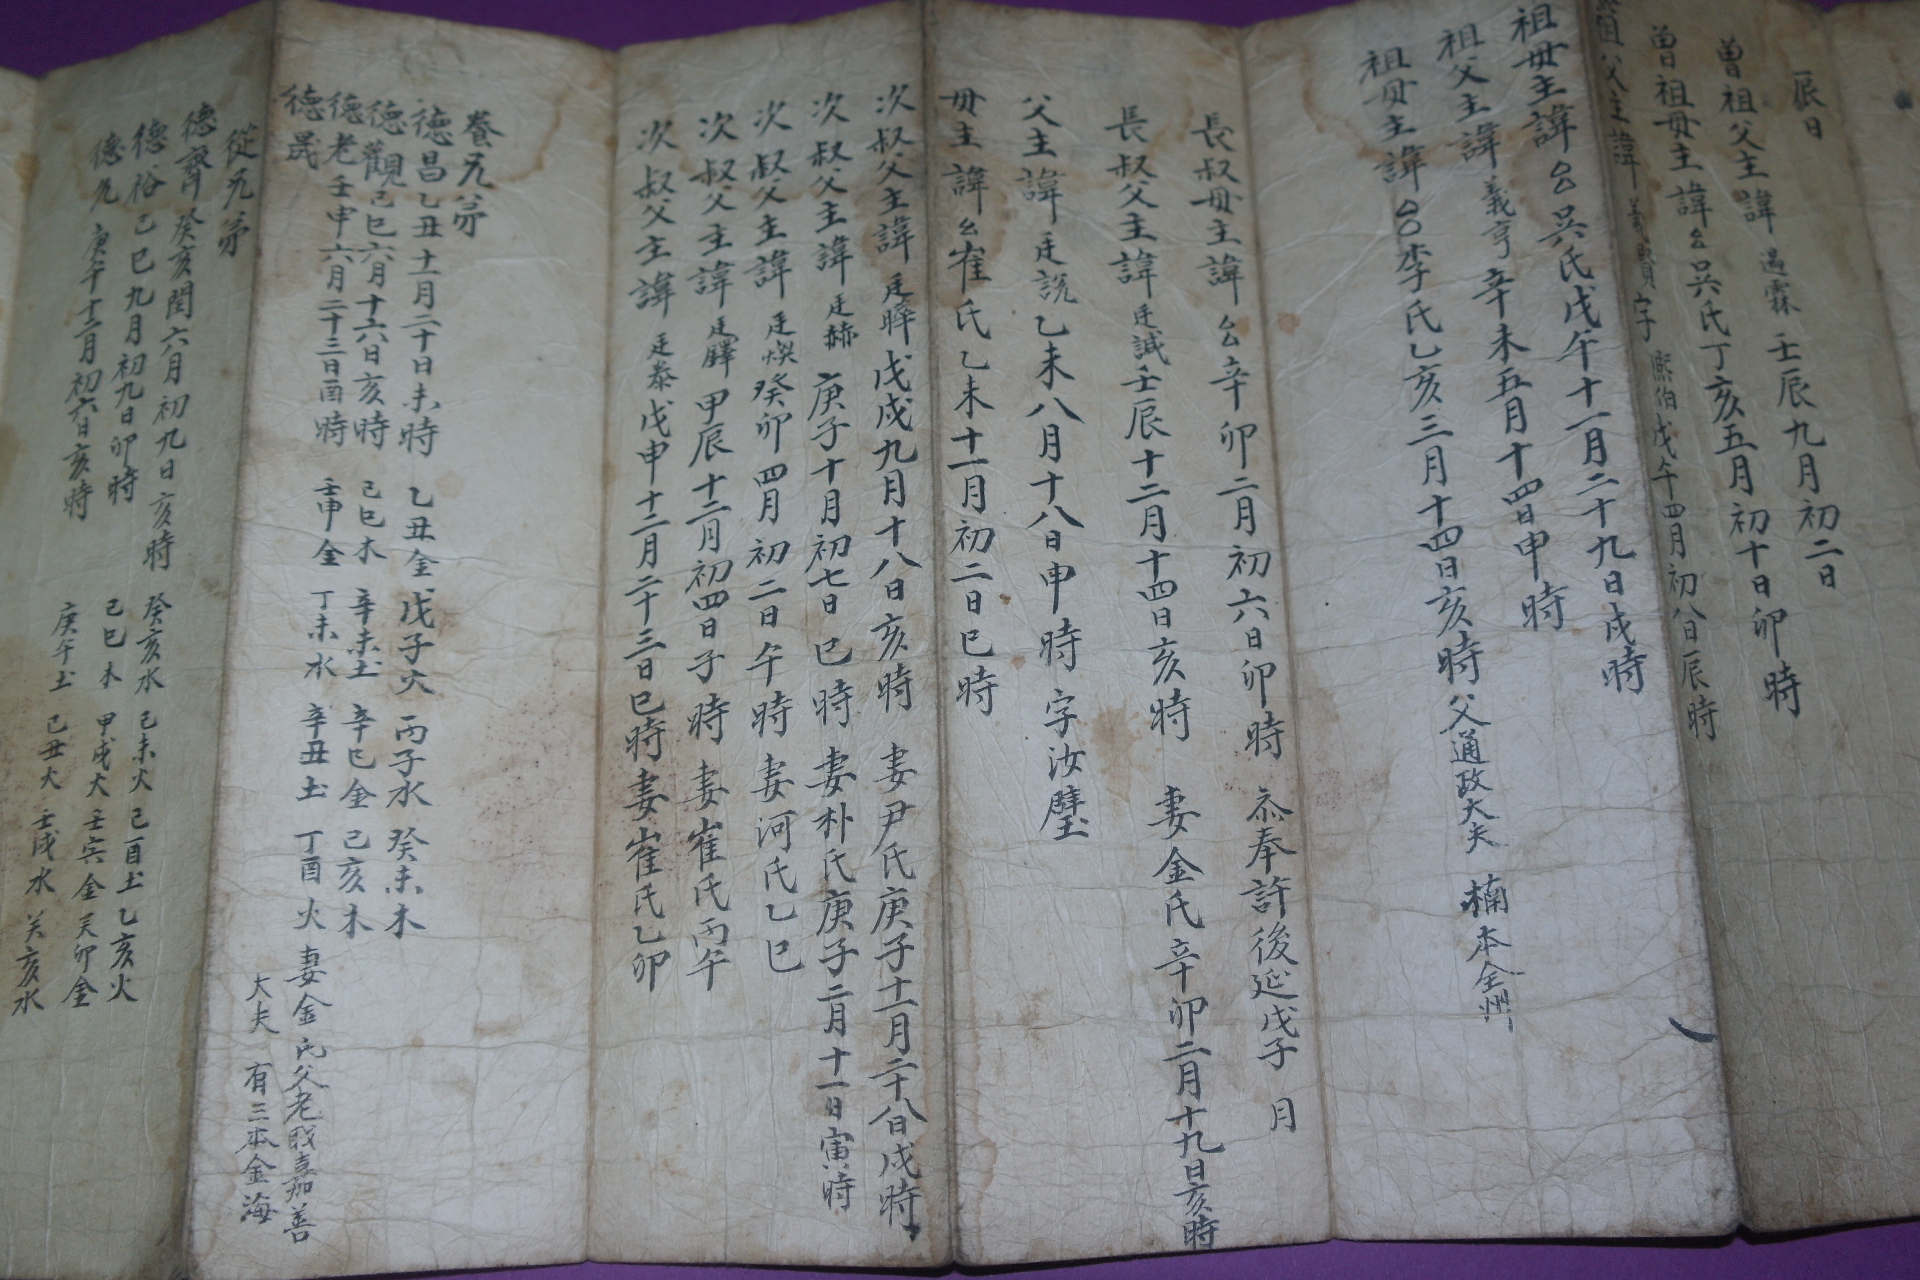 辰日
曾祖父主諱 遇霖 壬辰九月初二日
曾祖母主諱 吳氏丁亥五月初十日卯時
祖父主諱 義 字 熙伯 戊午四月初八日辰時
祖母主諱 吳氏戊午十一月二十九日戌時
祖父主諱 義亨 辛未五月十四日申時
祖母主諱 李氏乙亥三月十四日亥時 父通政大夫 楠 本全州
長叔母主諱 辛卯二月初六日卯時 奉許後延戊子 月
長叔父主諱 廷誠 壬辰十二月十四日亥時 妻金氏辛卯二月十九日亥時
父主諱 廷說 乙未八月十八日申時 字汝璧
母主諱 崔氏乙未十一月初二日巳時
次叔父主諱 廷 戊戌九月十八日亥時 妻尹氏庚子十一月二十八日戌時
次叔父主諱 廷赫 庚子十月初七日巳時 妻朴氏庚子二月十一日寅時
次叔父主諱 廷煥 癸卯四月初二日午時 妻河氏乙巳
次叔父主諱 廷 甲辰十二月初四日子時 妻崔氏丙午
次叔父主諱 廷泰 戊申十二月二十三日巳時 妻崔氏乙卯
養兄弟
德昌 乙丑十一月二十日未時 乙丑金 戊子火 丙子水 癸未木
德觀 己巳六月十六日亥時 己巳木 辛未土 辛巳金 己亥木
德老 壬申六月二十三日酉時 壬申金 丁未水 辛丑土 丁酉火 妻金氏父老 嘉善
德晟 大夫 有三 本金海
從兄弟
德齊 癸亥閏六月初九日亥時 癸亥水 己未火 己酉土 乙亥火
德裕 己巳九月初九日卯時 己巳木 甲戌火 壬寅金 癸卯金
德九 庚午十二月初六日亥時 庚午土 己丑火 壬戌水 癸亥水